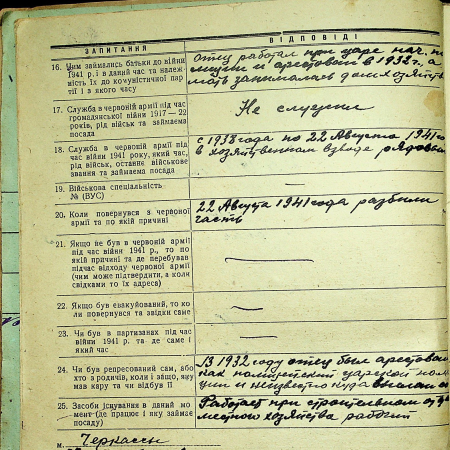 ЗАПИТАННЯ
ВІДПОВІДІ
16. Чим займались батьки до війни
1941 р. і в даний час та належ-
ність їх до комуністичної пар-
тії і з якого часу
отец работал при царе нач. по
лиции и арестован в 1932 г. а
мать занималась домхозяйств
17. Служба в червоній армії під час
громадянської війни 1917—22
років, рід військ та займаєма
посада
Не служил
18. Служба в червоній армії під
час війни 1941 року, який час,
рід військ, останнє військове
звання та займаєма посада
с 1938 года по 22 Августа 1941 го
в хозяйственном взводе рядовым
19. Військова спеціальність
№ (ВУС)
—
20. Коли повернувся з червоної
армії та по якій причині
22 Августа 1941 года разбили
часть
21. Якщо не був в червоній армії
під час війни 1941 р., то по
якій причині та де перебував
підчас відходу червоної армії
(чим може підтвердити, а коли
свідками то їх адреса)
—
22. Якщо був евакуйований, то ко-
ли повернувся та звідки саме
—
23. Чи був в партизанах під час
війни 1941 р. та де саме і
який час
—
24. Чи був репресований сам, або
хто з родичів, коли і защо, яку
мав кару та чи відбув її
В 1932 году отец был арестован
как полицейский царской поли
ции и неизвестно куда выслан
25. Засоби існування в даний мо-
мент (де працює і яку займає
посаду)
Работает при строительном отде
местного хозяйства рабочий
м. Черкассы